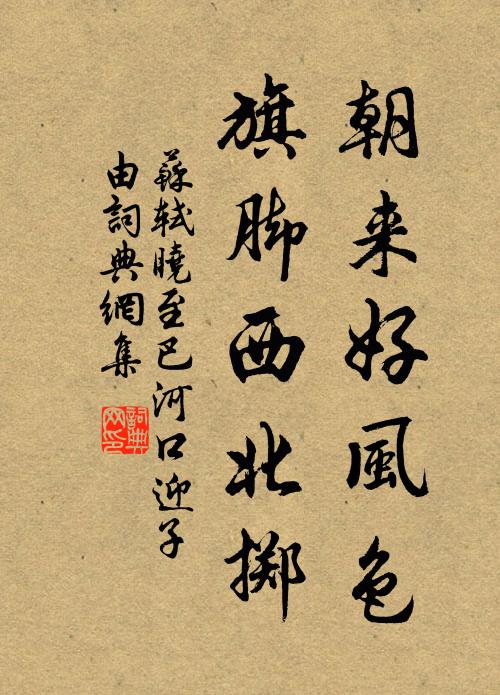 朝来好風色
旗脚西北掷
蘇軾曉至巴河口迎子
由詞典網集
詞典網印